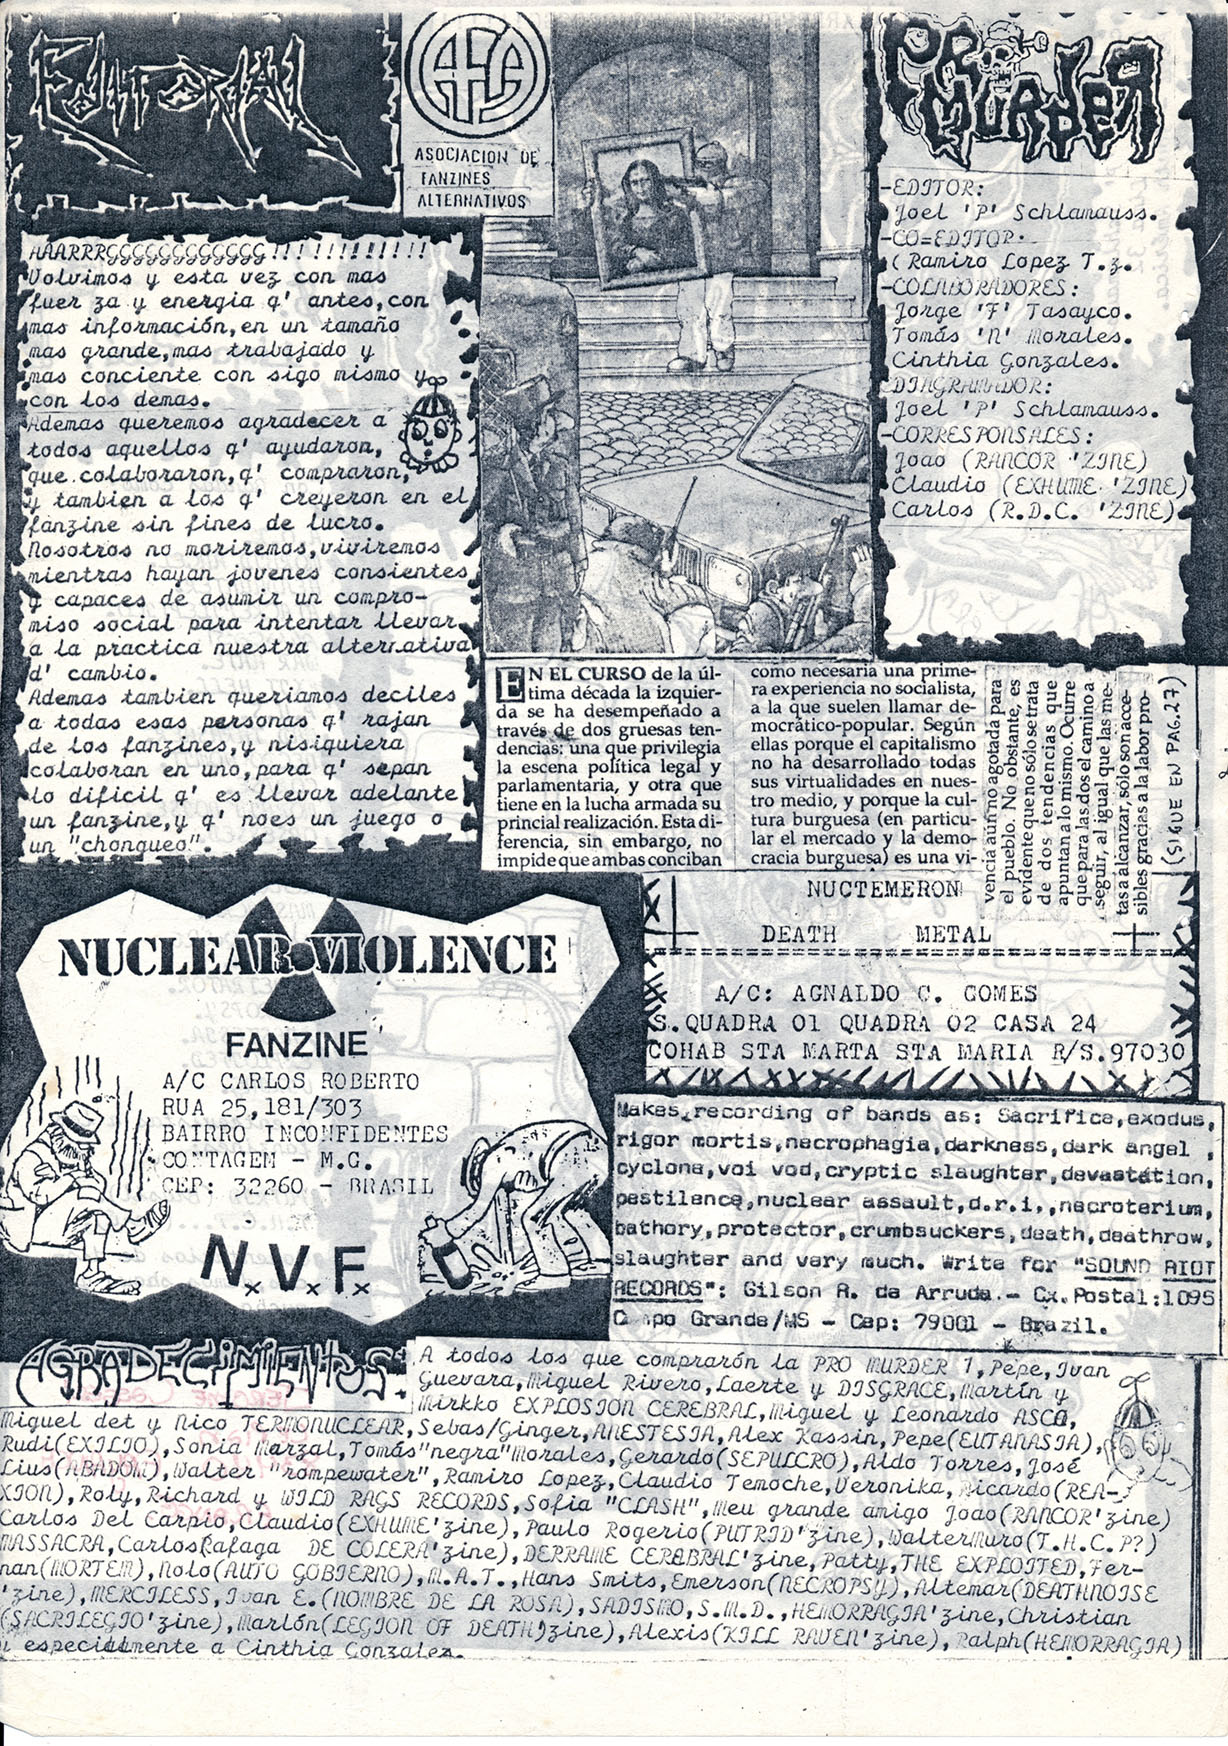 EDITORIAL
AAARRRGGGGGGGGGGGG!!!!!!!!!!!!
Volvimos y esta vez con mas
fuer za y energia q' antes,con
mas información,en un tamaño
mas grande,mas trabajado y
mas conciente con sigo mismo y
con los demas.
Ademas queremos agradecer a
todos aquellos q' ayudaron,
que colaboraron,q' compraron,
y tambien a los q' creyeron en el
fanzine sin fines de lucro.
Nosotros no moriremos,viviremos
mientras hayan jovenes consientes
y capaces de asumir un compro-
miso social para intentar llevar
a la practica nuestra alternativa
d' cambio.
Ademas tambien queriamos deciles
a todas esas personas q' rajan
de los fanzines,y nisiquiera
colaboran en uno,para q' sepan
lo dificil q' es llevar adelante
un fanzine,y q' noes un juego o
un "chongueo".
AFA
ASOCIACION DE
FANZINES
ALTERNATIVOS
PRO
MURDER
-EDITOR:
Joel 'P' Schlamauss.
-CO=EDITOR.
(Ramiro Lopez T.z.
-COLABORADORES:
Jorge 'F' Tasayco.
Tomás 'N' Morales.
Cinthia Gonzales.
DIAGRAMADOR:
Joel 'P' Schlamauss.
-CORRESPONSALES:
Joao (RANCOR 'ZINE)
Claudio (EXHUME 'ZINE)
Carlos (R.D.C. 'ZINE)
EN EL CURSO de la úl-
tima década la izquier-
da se ha desempeñado a
través de dos gruesas ten-
dencias: una que privilegia
la escena política legal y
parlamentaria, y otra que
tiene en la lucha armada su
princial realización. Esta di-
ferencia, sin embargo, no
impide que ambas conciban
como necesaria una prime-
ra experiencia no socialista,
a la que suelen llamar de-
mocrático-popular. Según
ellas porque el capitalismo
no ha desarrollado todas
sus virtualidades en nues-
tro medio, y porque la cul-
tura burguesa (en particu-
lar el mercado y la demo-
cracia burguesa) es una vi-
vencia aún no agotada para
el pueblo. No obstante, es
evidente que no sólo se trata
de dos tendencias que
apuntan a lo mismo. Ocurre
que para las dos el camino a
seguir, al igual que las me-
tas a alcanzar, sólo son acce-
sibles gracias a la labor pro-
(SIGUE EN PAG.27)
NUCLEAR VIOLENCE
FANZINE
A/C CARLOS ROBERTO
RUA 25,181/303
BAIRRO INCONFIDENTES
CONTAGEM - M.G.
CEP: 32260 - BRASIL
N.V.F.
NUCTEMERON
DEATH METAL
A/C: AGNALDO C. GOMES
S.QUADRA 01 QUADRA 02 CASA 24
COHAB STA MARTA STA MARIA R/S.97030
Makes recording of bands as: Sacrifice,exodus,
rigor mortis,necrophagia,darkness,dark angel ,
cyclone,voi vod,cryptic slaughter,devastation,
pestilence,nuclear assault,d.r.i,,necroterium,
bathory,protector,crumbsuckers,death,deathrow,
slaughter and very much. Write for "SOUND RIOT
RECORDS": Gilson R. da Arruda.- Cx.Postal:1095
Campo Grande/MS - Cep: 79001 - Brazil.
AGRADECIMIENTOS:
A todos los que comprarón la PRO MURDER 1,Pepe,Ivan
Guevara,Miguel Rivero,Laerte y DISGRACE,Martín y
Mirkko EXPLOSION CEREBRAL,Miguel y Leonardo ASCO,
Miguel det y Nico TERMONUCLEAR,Sebas/Ginger,ANESTESIA,Alex Kassin,Pepe(EUTANASIA),
Rudi(EXILIO),Sonia Marzal,Tomás"negra"Morales,Gerardo(SEPULCRO),Aldo Torres,José
Lius(ABADOM),Walter "rompewater",Ramiro Lopez,Claudio Temoche,Veronika,Ricardo(REA-
XION),Roly,Richard y WILD RAGS RECORDS,Sofia "CLASH",Meu grande amigo Joao(RANCOR'zine)
Carlos Del Carpio,Claudio(EXHUME'zine),Paulo Rogerio(PUTRID'zine),WalterMuro(T.H.C.P?)
MASSACRA,Carlos(Rafaga DE COLERA'zine),DERRAME CEREBRAL'zine,Patty,THE EXPLOITED,Fer-
nan(MORTEM),Nolo(AUTO GOBIERNO),M.A.T.,Hans Smits,Emerson(NECROPSY),Altemar(DEATHNOISE
'zine),MERCILESS,Ivan E.(NOMBRE DE LA ROSA),SADISMO,S.M.D.,HEMORRAGIA'zine,Christian
(SACRILEGIO'zine),Marlón(LEGION OF DEATH'zine),Alexis(KILL RAVEN'zine),Ralph(HEMORRAGIA)
y especialmente a Cinthia Gonzalez.